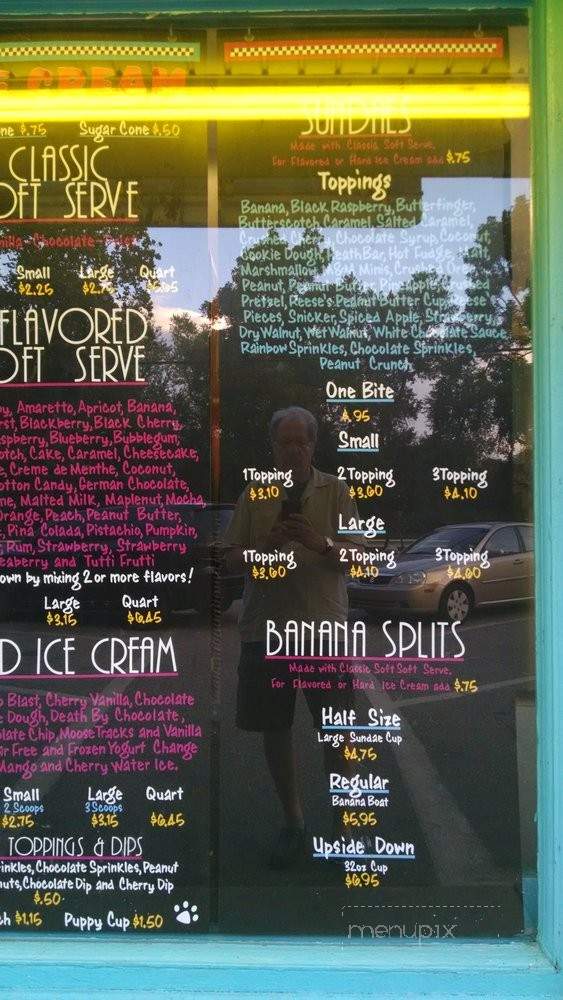 CREAM
$.75 Sugar Cone $.50
CLASSIC
SERVE
Chocolate
Small Large Quart
$2.25
FLAVORED
SERVE
Amaretto, Apricot, Banana,
Blackberry, Black Cherry,
Blueberry, Bubblegum,
Cake, Caramel, Cheesecake,
Creme de Menthe, Coconut,
Cotton Candy, German Chocolate,
Malted Milk, Maplenut, Mocha,
Orange, Peach, Peanut Butter,
Pina Colada, Pistachio, Pumpkin,
Rum, Strawberry, Strawberry
and Tutti Frutti
own by mixing 2 or more flavors!
Large Quart
$3.15 $6.45
ICE CREAM
Blast, Cherry Vanilla, Chocolate
Dough, Death By Chocolate,
Chip, Moose Tracks and Vanilla
Free and Frozen Yogurt Change
Mango and Cherry Water Ice.
Small Large Quart
2 Scoops 3 Scoops
$2.75 $3.15 $6.45
TOPPINGS & DIPS
Chocolate Sprinkles, Peanut
Chocolate Dip and Cherry Dip
$.50
$1.15 Puppy Cup $1.50
SUNDAES
Made with Classic Soft Serve,
For Flavored or Hard Ice Cream add $.75
Toppings
Banana, Black Raspberry, Butterfinger,
Butterscotch, Caramel, Salted Caramel,
Crushed Cherry, Chocolate Syrup, Coconut,
Cookie Dough, Heath Bar, Hot Fudge, Malt,
Marshmallow, M&M Minis, Crushed Oreo
Peanut, Peanut Butter, Pineapple, Crushed
Pretzel, Reese's Peanut Butter Cup, Reese's
Pieces, Snicker, Spiced Apple, Strawberry,
Dry Walnut, Wet Walnut, White Chocolate Sauce,
Rainbow Sprinkles, Chocolate Sprinkles,
Peanut Crunch
One Bite
$.95
Small
1 Topping 2 Topping 3 Topping
$3.10 $3.60 $4.10
Large
1 Topping 2 Topping 3 Topping
$3.60 $4.10 $4.60
BANANA SPLITS
Made with Classic Soft Soft Serve,
For Flavored or Hard Ice Cream add $.75
Half Size
Large Sundae Cup
$4.75
Regular
Banana Boat
$5.95
Upside Down
32oz Cup
$6.95
menupix